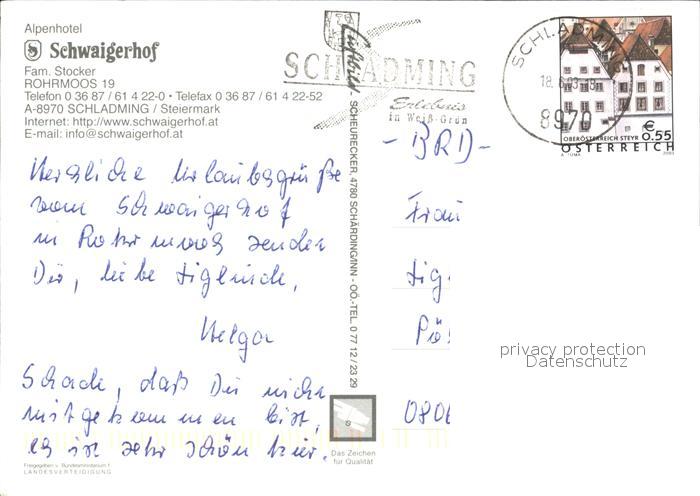 Alpenhotel
Schwaigerhof
Fam. Stocker
ROHRMOOS 19
Telefon 0 36 87 / 61 4 22-0 · Telefax 0 36 87 / 61 4 22-52
A-8970 SCHLADMING / Steiermark
Internet: http://www.schwaigerhof.at
E-mail: info@schwaigerhof.at
Herzliche Urlaubsgrüße
vom Schwaigerhof
in Rohrmoos senden
Dir, liebe Siglinde,
Helga
Schade, daß Du nicht
mitgekommen bist,
es ist sehr schön hier.
Freigegeben v. Bundesministerium f.
LANDESVERTEIDIGUNG
Luftbild
SCHEURECKER, 4780 SCHÄRDING/INN - OÖ.-TEL. 0 77 12 / 23 29
Das Zeichen
für Qualität
SCHLADMING
Erlebnis
in Weiß-Grün
SCHLADMING
8970
OBERÖSTERREICH STEYR
€ 0.55
ÖSTERREICH
A. TUMA
2003
- BRD -
Frau
Sig
Pö
0806
privacy protection
Datenschutz